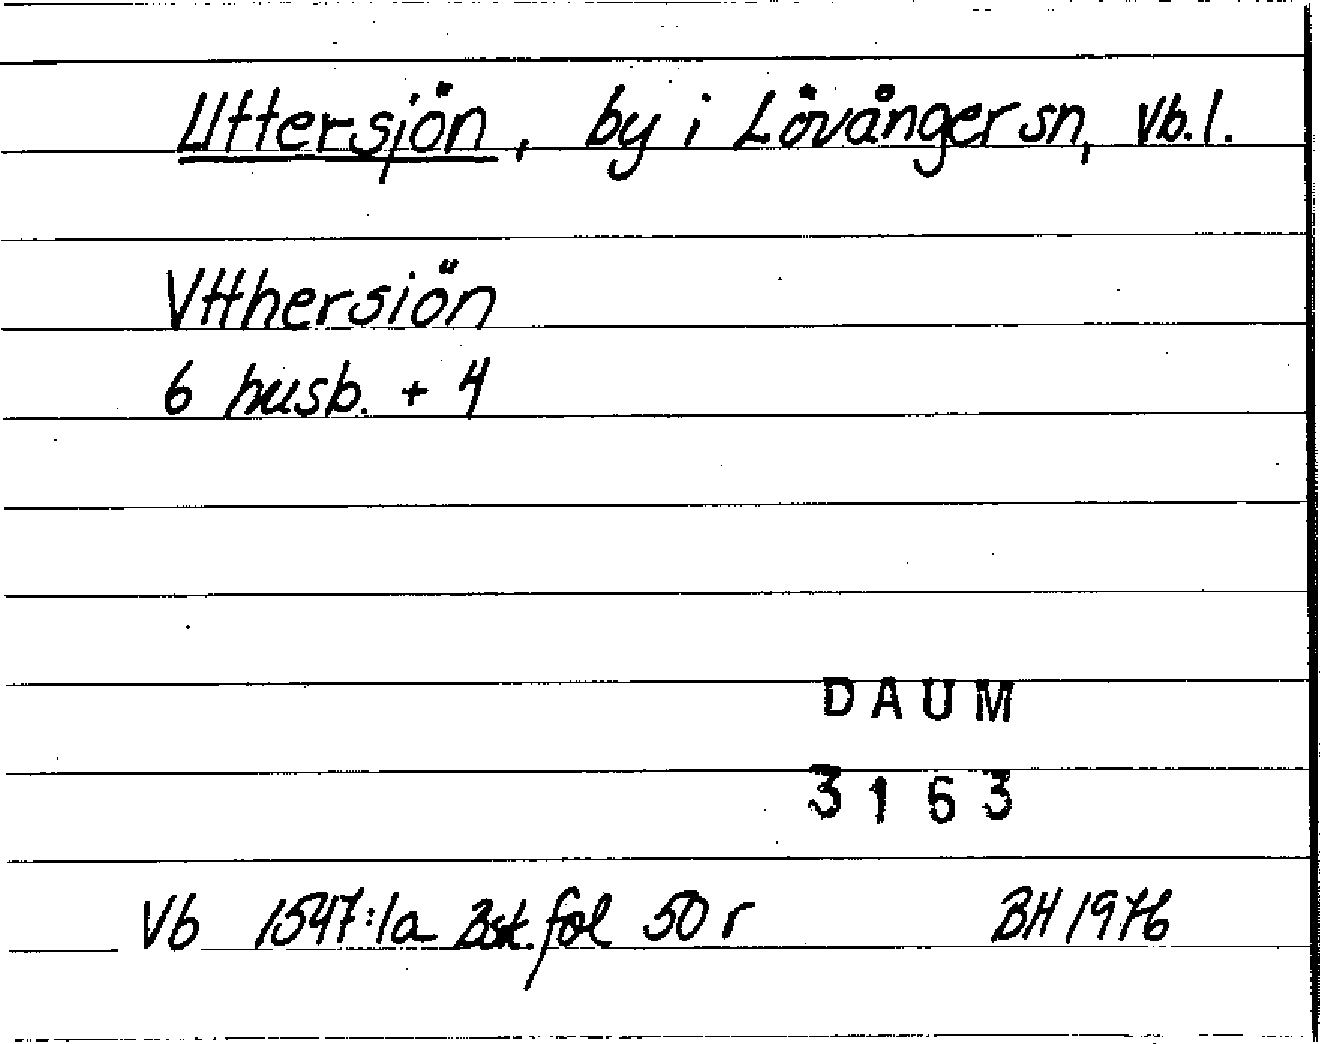 Uttersjön, by i Lövånger sn, Vb. l.
Vtthersiön
6 husb. + 4
DAUM
3163
Vb 1547:1a Bsk. fol 50 r BH 1976